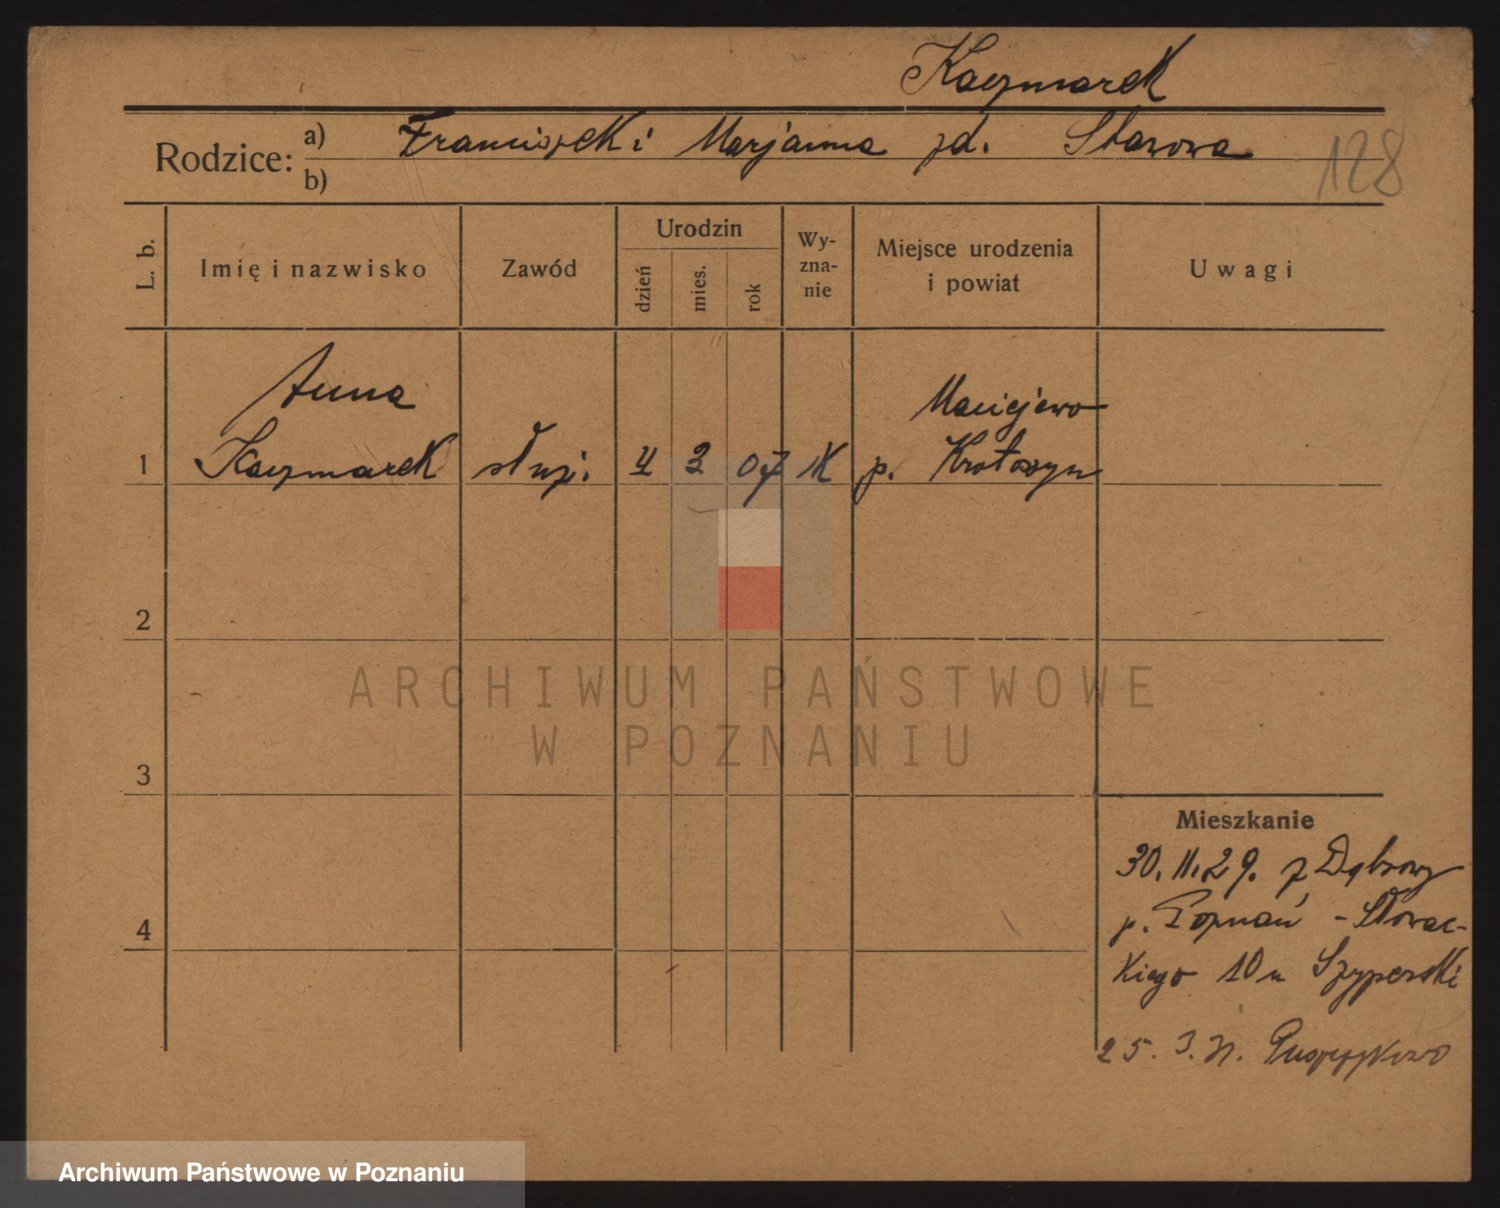 Kaczmarek
Rodzice: a) Franciszek i Marjanna zd. Starowa
b)
128
L. b.
Imię i nazwisko
Zawód
Urodzin
dzień
mies.
rok
Wy-
zna-
nie
Miejsce urodzenia
i powiat
Uwagi
Anna
Kaczmarek
1
służ.
4
2
07
K
Maciejewo
p. Krotoszyn
2
3
4
ARCHIWUM PAŃSTWOWE
W POZNANIU
Mieszkanie
30. 11. 29. z Dąbrowy
p. Poznań - Słowac-
kiego 10 u Szyperski
25. 3. 31. Puszczykowo
Archiwum Państwowe w Poznaniu